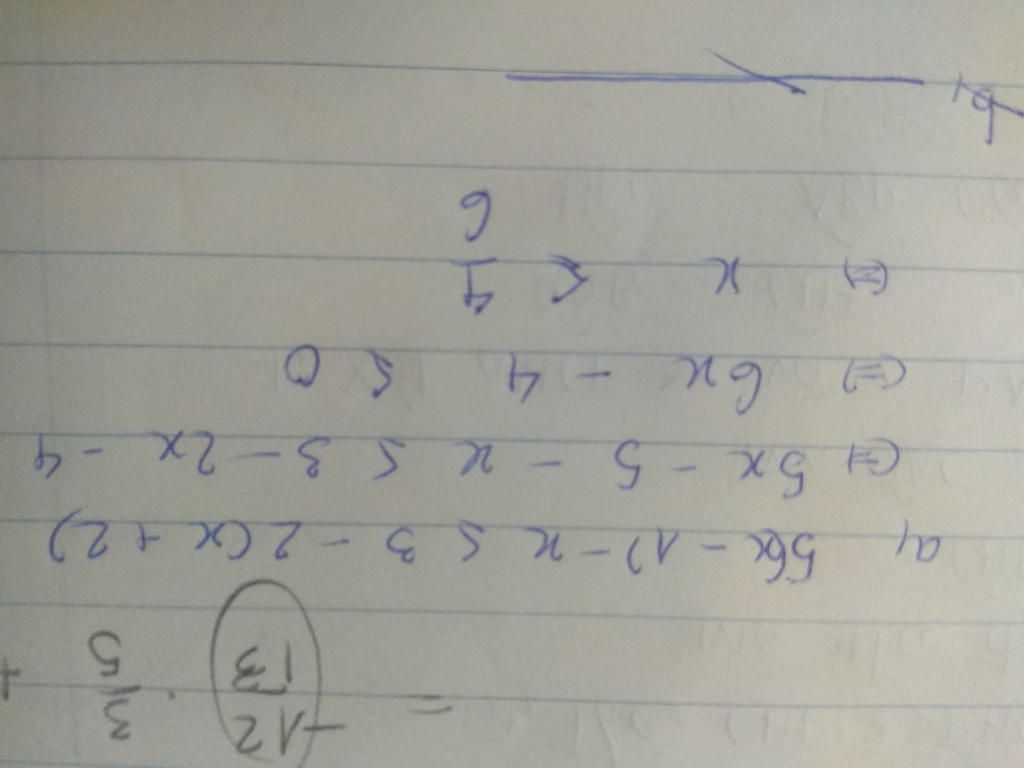 = \frac{-12}{13} . \frac{3}{5} +
a, 5(x - 1) - x ≤ 3 - 2(x + 2)
(=) 5x - 5 - x ≤ 3 - 2x - 4
(=) 6x - 4 ≤ 0
(=) x ≤ \frac{4}{6}
b,